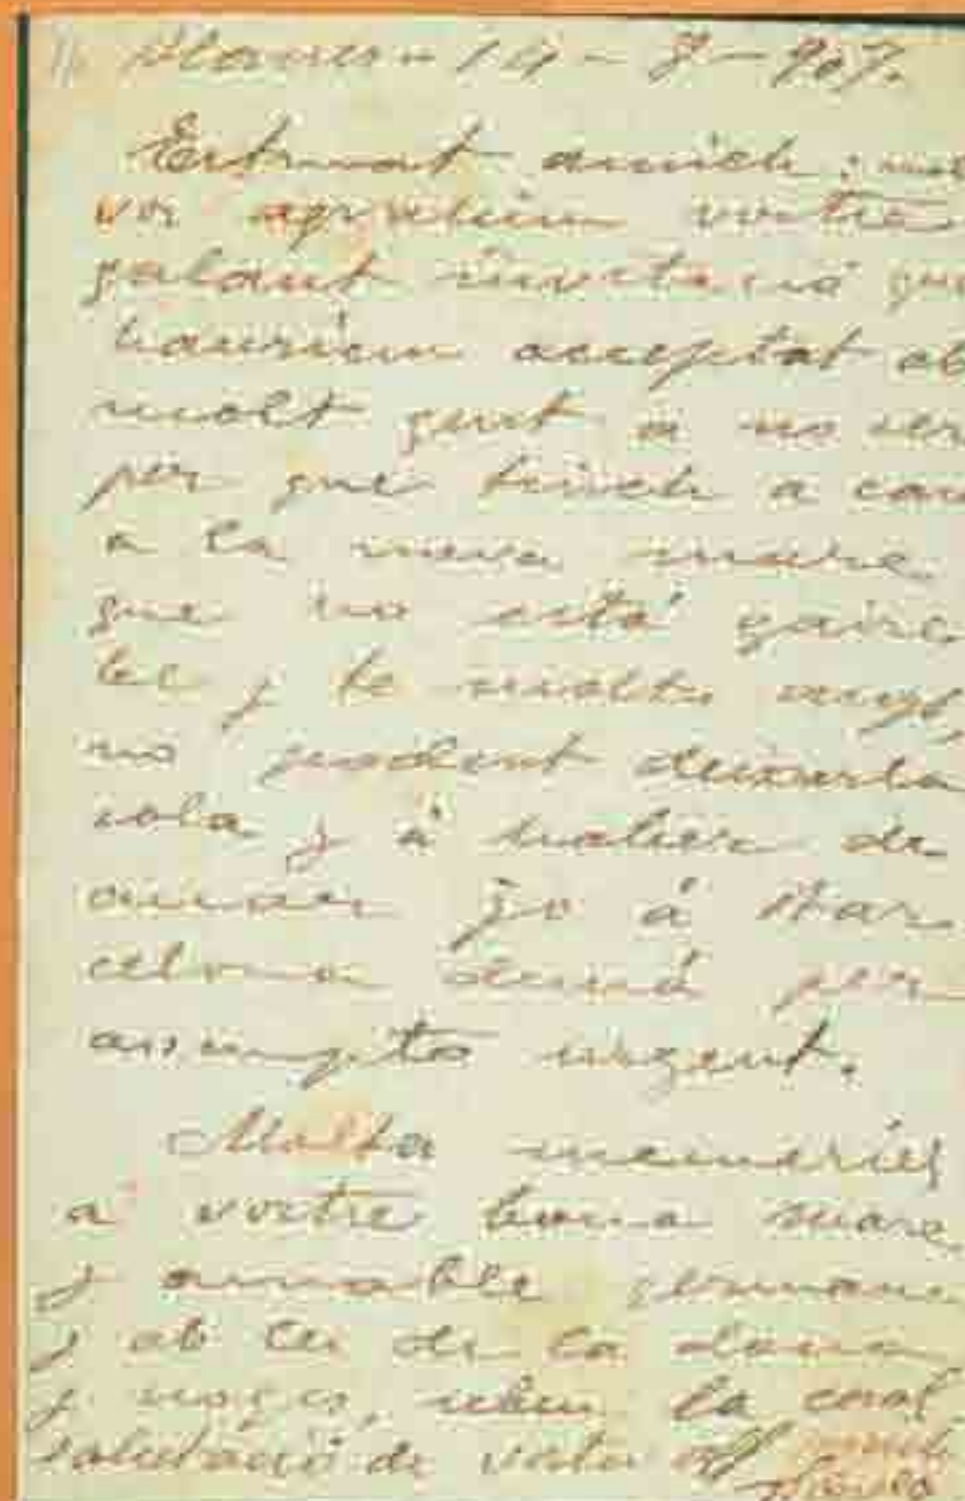 Blanes - 14 - 7 - 907.
Estimat amich: molt
vos agrahim vostra
galant invitació que
hauriem acceptat ab
molt gust a no ser
per que tinch a casa
a la meva mare
que no está gaire
be y te molta
no podent deixarla
sola y á d'
anar jo á Bar
celona demá per
assumptos urgent.
Molta memories
a vostre bona mare
y amable germana
y ab les de la dona
y noyes, rebeu la coral
salutació de vostre aff amich